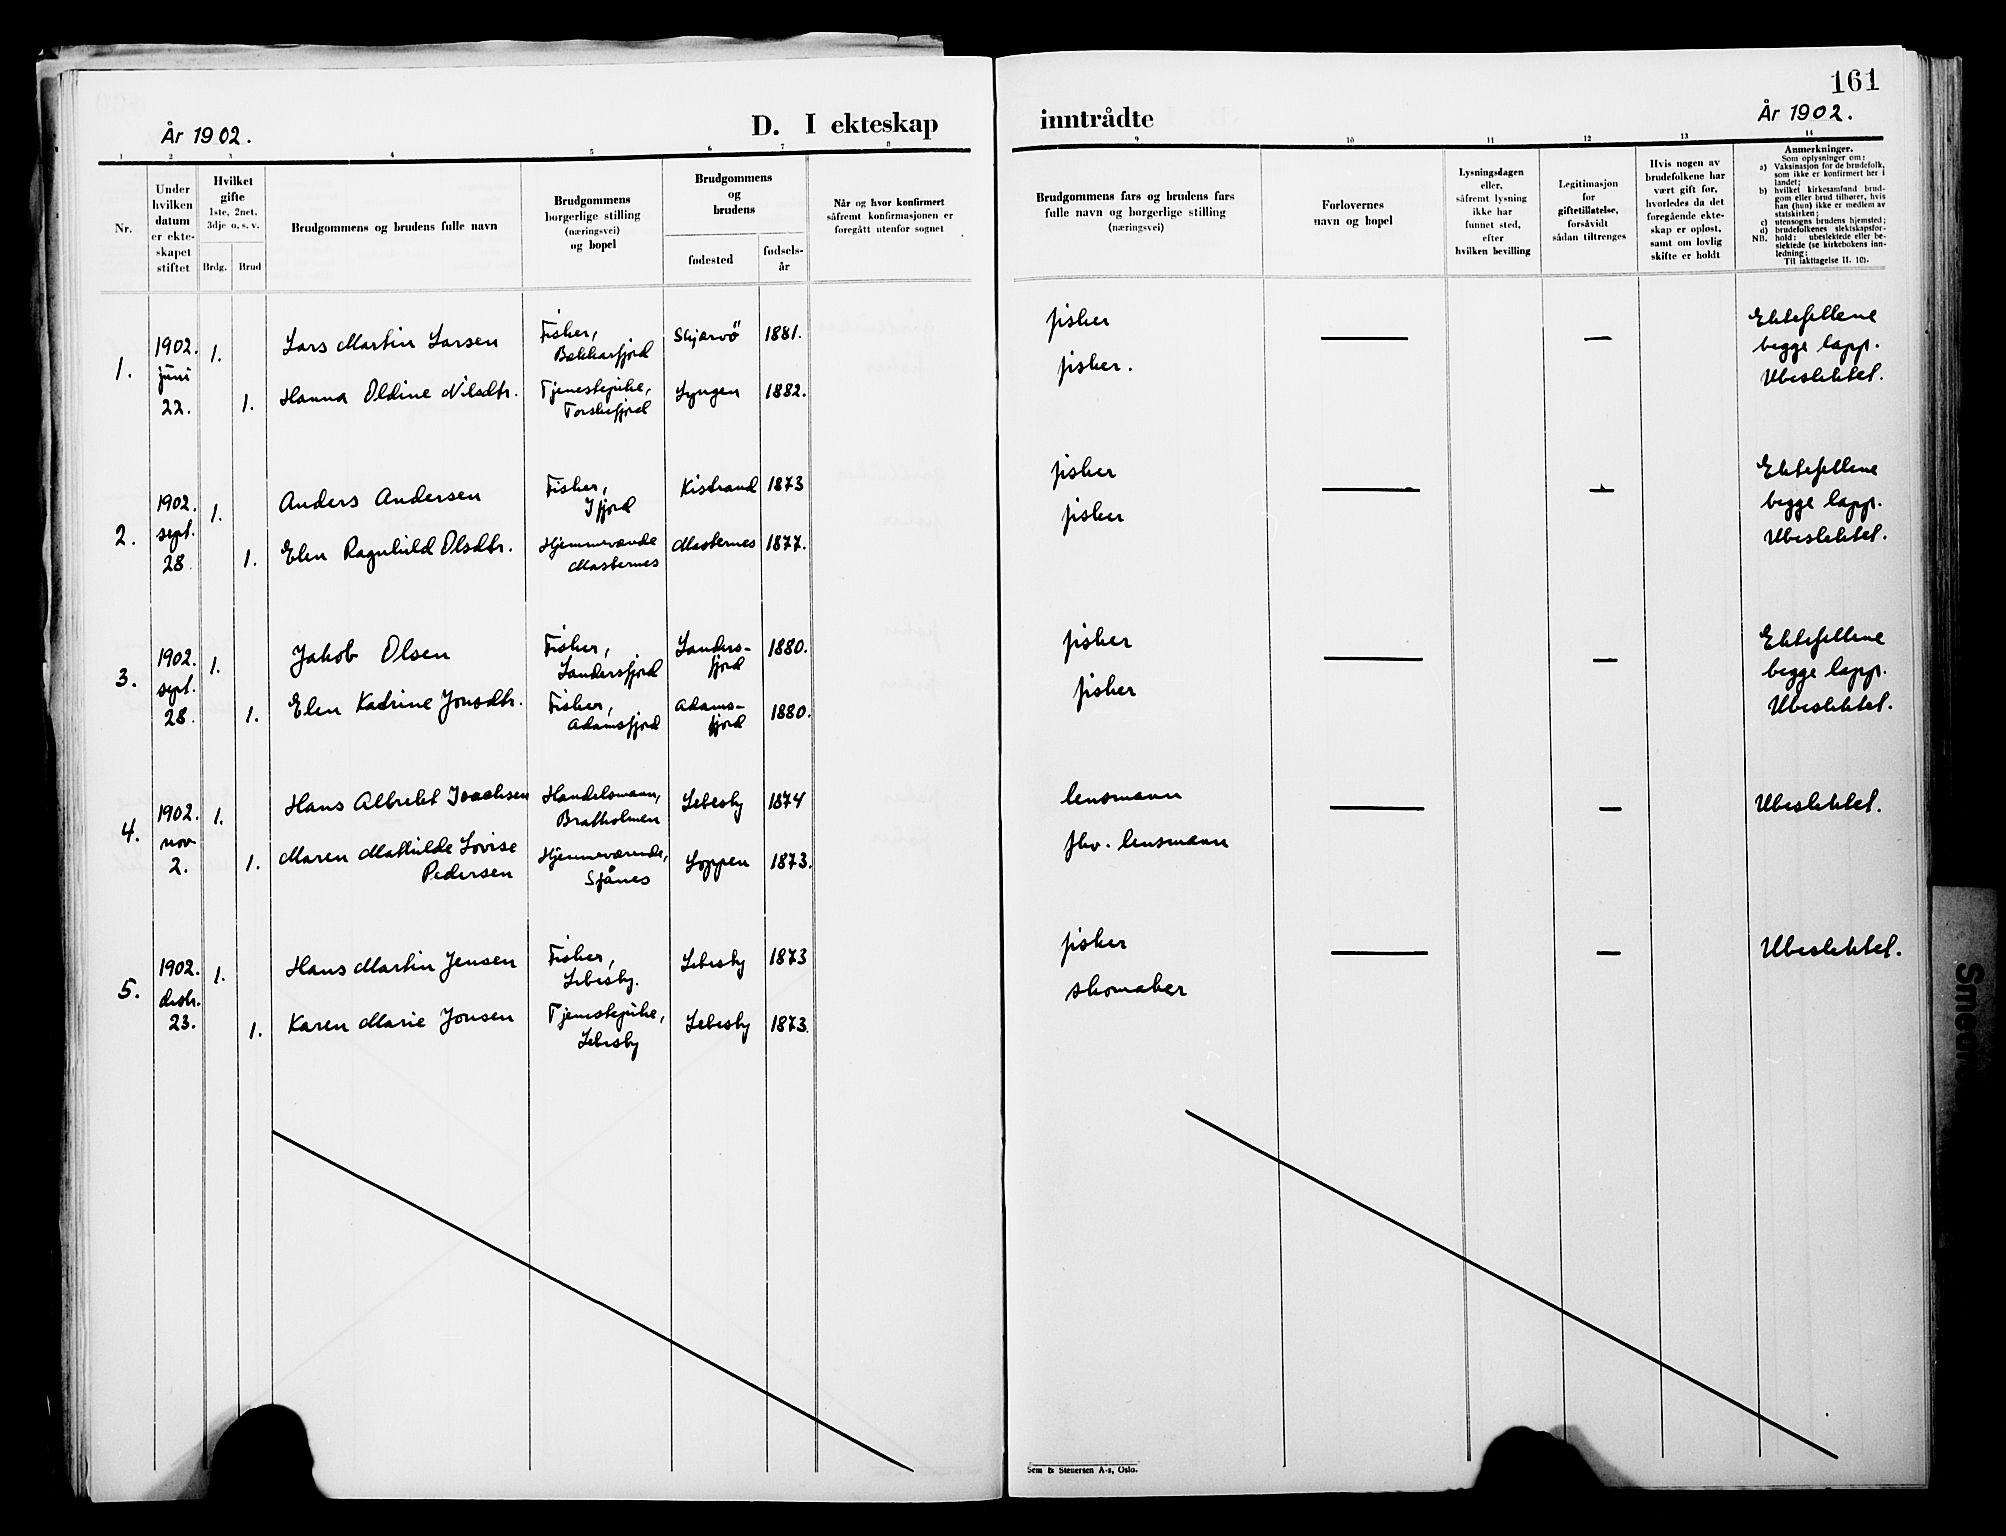 161
År 1902.
D. I ekteskap
inntrådte
År 1902.
1 2 3 4 5 6 7 8
9 10 11 12 13 14
Nr.
Under
hvilken
datum
er ekte-
skapet
stiftet
Hvilket
gifte
1ste, 2net,
3dje o. s. v.
Brdg.
Brud
Brudgommens og brudens fulle navn
Brudgommens
borgerlige stilling
(næringsvei)
og bopel
Brudgommens
og
brudens
fødested
fødsels-
år
Når og hvor konfirmert
såfremt konfirmasjonen er
foregått utenfor sognet
Brudgommens fars og brudens fars
fulle navn og borgerlige stilling
(næringsvei)
Forlovernes
navn og bopel
Lysningsdagen
eller,
såfremt lysning
ikke har
funnet sted,
efter
hvilken bevilling
Legitimasjon
for
giftetillatelse,
forsåvidt
sådan tiltrenges
Hvis nogen av
brudefolkene har
vært gift før,
hvorledes da det
foregående ekte-
skap er opløst,
samt om lovlig
skifte er holdt
Anmerkninger.
Som oplysninger om:
a) Vaksinasjon for de brudefolk,
som ikke er konfirmert her i
landet;
b) hvilket kirkesamfund brud-
gom eller brud tilhører, hvis
han (hun) ikke er medlem av
statskirken;
c) utensogns brudens hjemsted;
d) brudefolkenes slektskapsfor-
NB. hold: ubeslektede eller be-
slektede (se kirkebokens inn-
ledning:
Til iakttagelse II. 10).
1.
1902.
juni
22.
1.
Lars Martin Larsen
Fisker,
Bekkarfjord
Skjærvö
1881.
fisker
Ektefellene
begge lapp.
Ubeslektet.
1.
Hanna Oldine Nilsdtr.
Tjenestepike,
Torskefjord
Lyngen
1882.
fisker.
2.
1902.
sept.
28.
1.
Anders Andersen
Fisker,
Ifjord
Kistrand
1873
fisker
Ektefellene
begge lapp.
Ubeslektet.
1.
Elen Ragnhild Olsdtr.
Hjemmevænde
Masternes
Masternes
1877.
fisker
3.
1902.
sept.
28.
1.
Jakob Olsen
Fisker,
Landersfjord
Landers-
fjord
1880.
fisker
Ektefellene
begge lapp.
Ubeslektet.
1.
Elen Katrine Jonsdtr.
Fisker,
Adamsfjord
Adams-
fjord
1880.
fisker
4.
1902.
nov
2.
1.
Hans Albrekt Isachsen
Handelsmann,
Bratholmen
Lebesby
1874
lensmann
Ubeslektet.
1.
Maren Mathilde Lovise
Pedersen
Hjemmeværende,
Sjånes
Loppen
1873.
fhv. lensmann
5.
1902.
desbr.
23.
1.
Hans Martin Jensen
Fisker,
Lebesby.
Lebesby
1873
fisker
Ubeslektet.
1.
Karen Marie Jonsen
Tjenestepike,
Lebesby
Lebesby
1873.
skomaker
Sem & Stenersen A-s, Oslo.